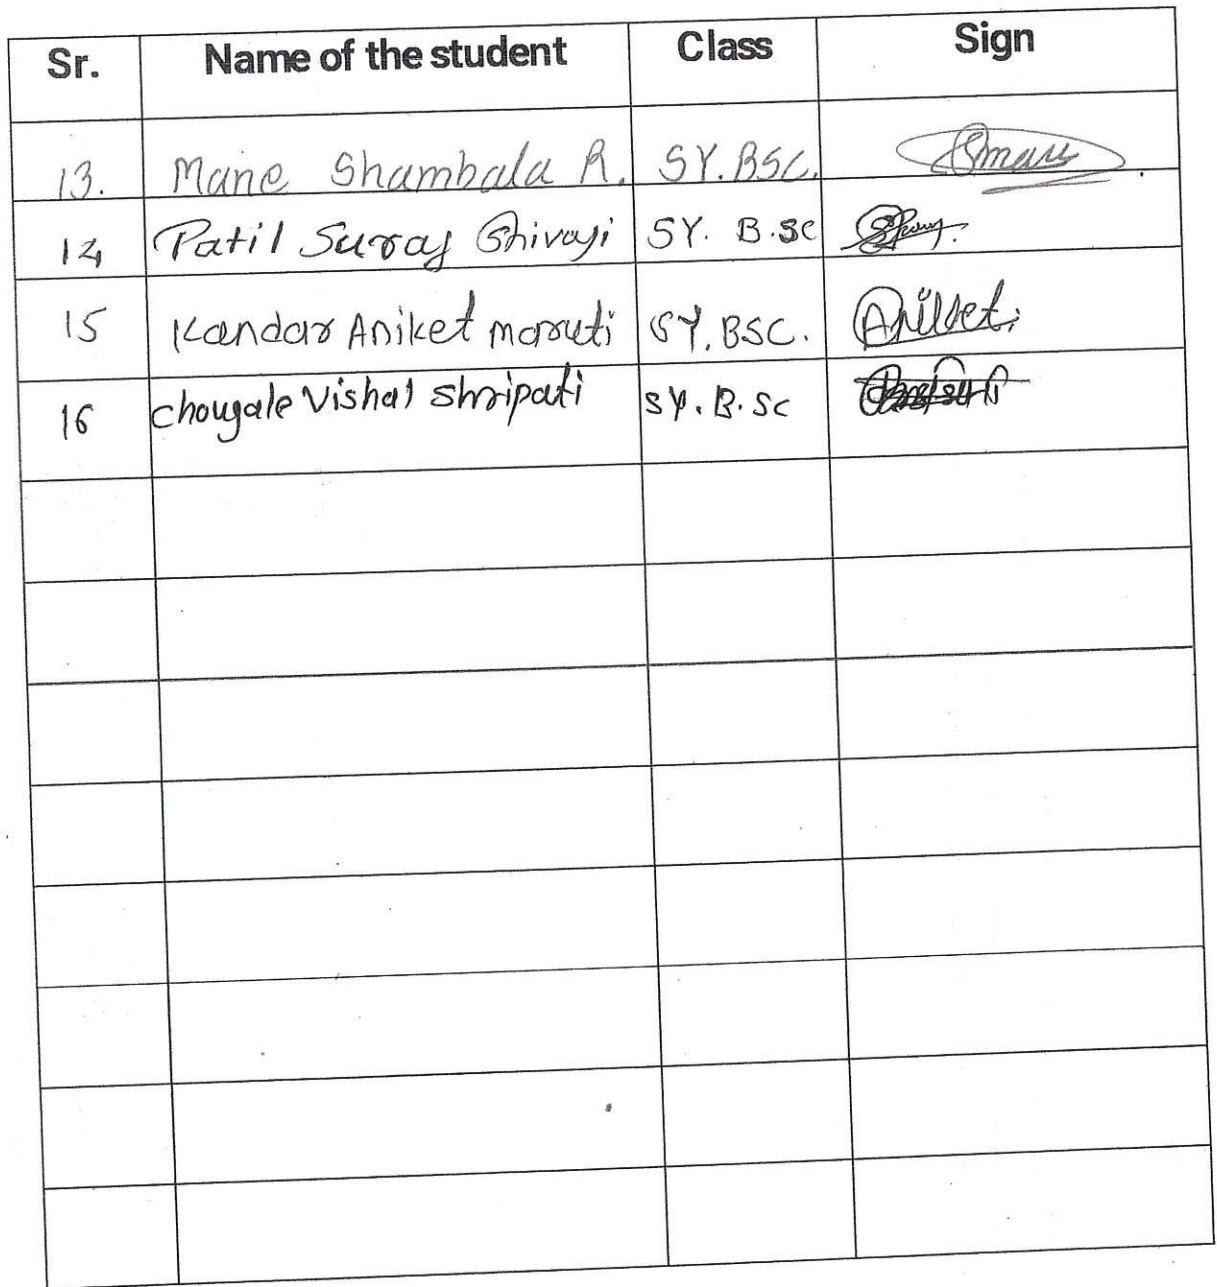 Sr. Name of the student Class Sign
13. Mane Shambala R. SY.BSC.
14 Patil Suraj Shivaji SY. B.Sc
15 Kandar Aniket maruti SY.BSC. Aniket
16 chougale Vishal Shripati SY.B.Sc